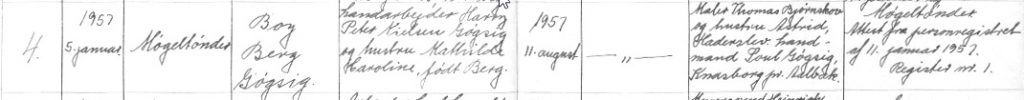 4.
1957
5. januar.
Mögeltönder
Boy
Berg
Gögsig.
Landarbejder Harry
Peter Nielsen Gögsig
og hustru Mathilde
Karoline, født Berg.
1957
11. august
— „ —
Maler Thomas Björnskov
og hustru Astrid,
Haderslev. Land-
mand Poul Gögsig,
Knasborg pr. Aalbæk.
Mögeltönder
Attest fra personregistret
af 11. januar 1957.
Register nr. 1.